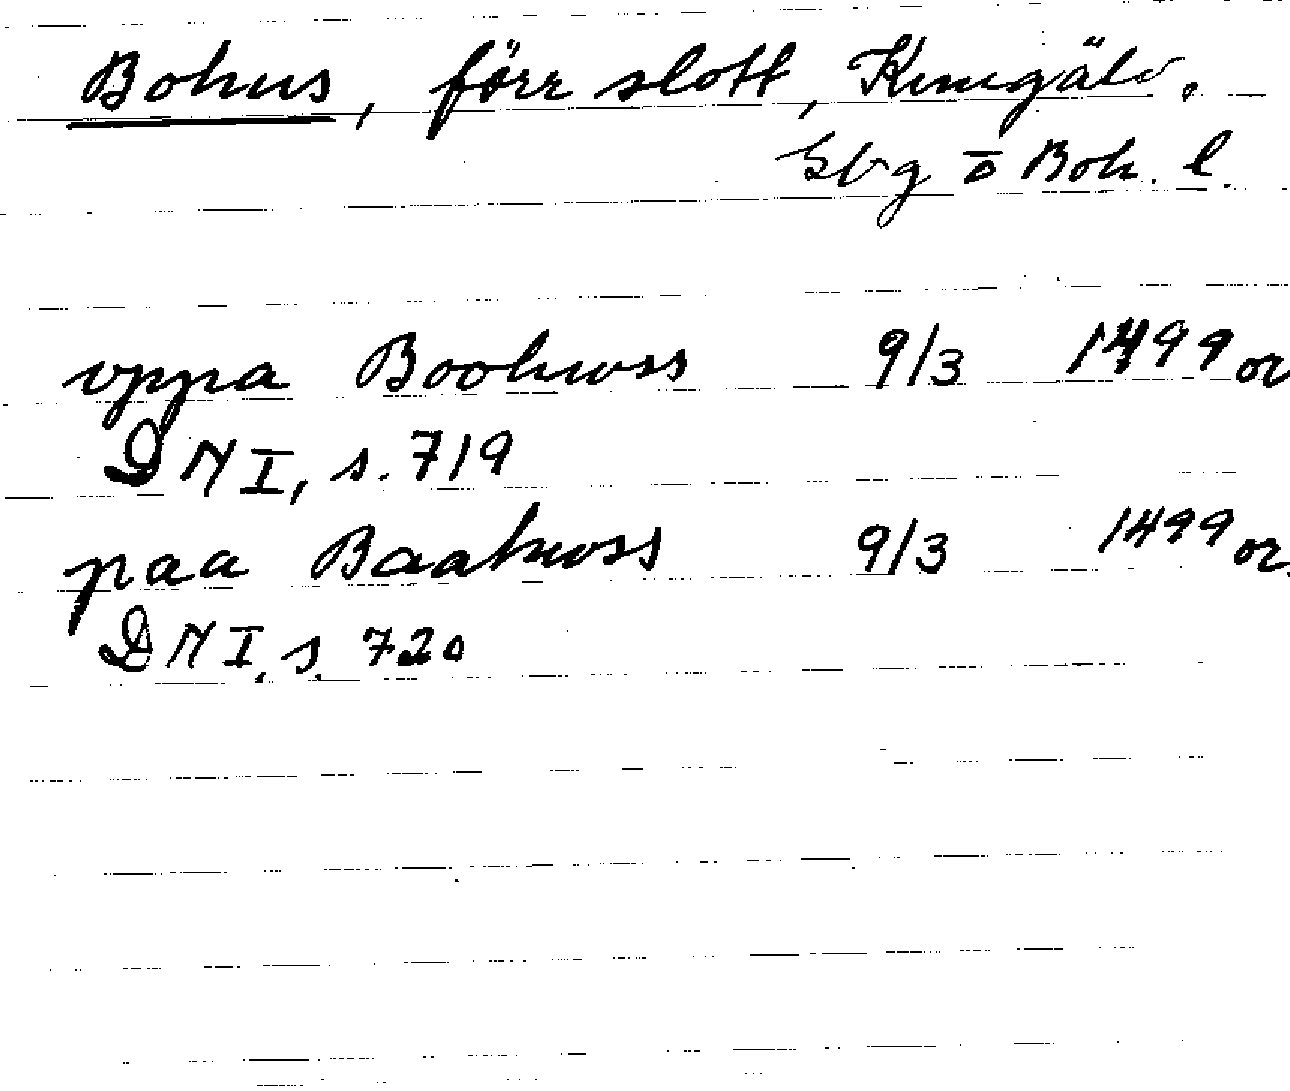 Bohus, förr slott, Kungälv.
Gbg o Boh. l.
vppa Boohwss 9/3 1499 or
DN I, s. 719
paa Baahwss 9/3 1499 or
DN I, s. 720